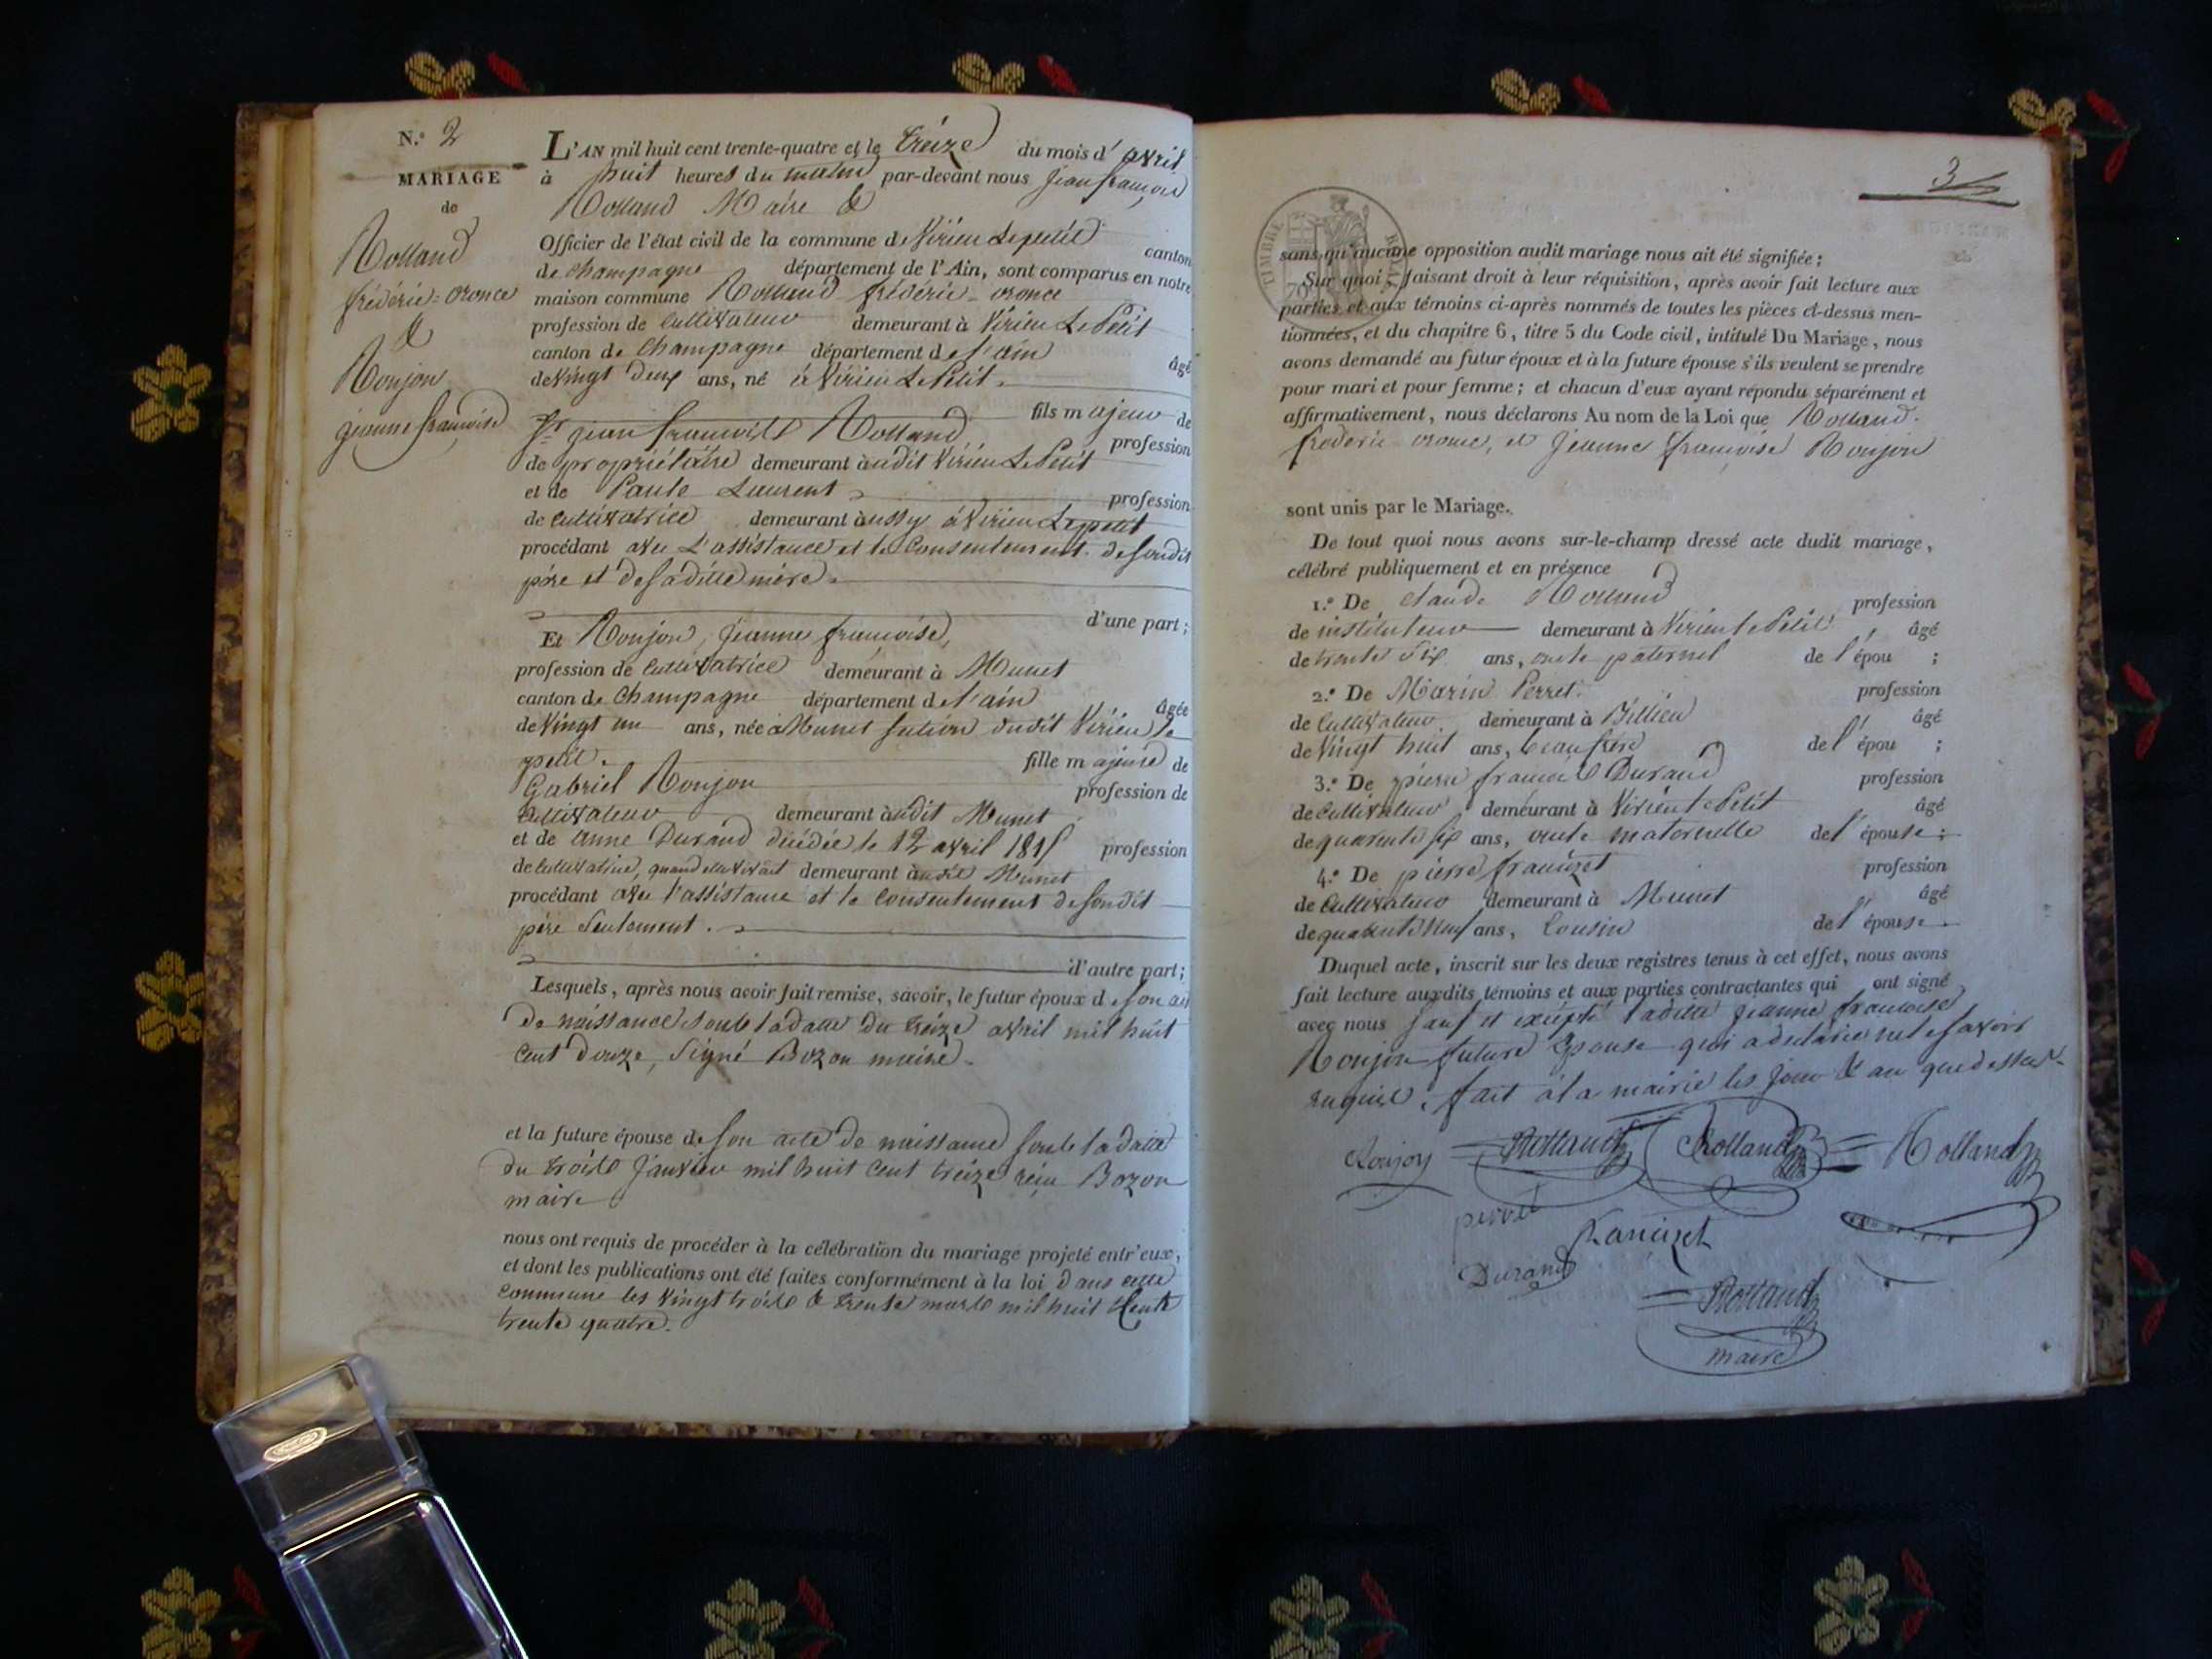 N.° 2
MARIAGE
de
Rolland
frédéric=oronce
&
Roujon
jeanne françoise
L'AN mil huit cent trente-quatre et le treize du mois d'avril
à huit heures du matin par-devant nous jean françois
Rolland Maire &
Officier de l'état civil de la commune de Virieu Lepetit canton
de Champagne département de l'Ain, sont comparus en notre
maison commune Rolland frédéric=oronce
profession de Cultivateur demeurant à Virieu Le Petit
canton de Champagne département de l'ain âgé
de Vingt deux ans, né à Virieu Le Petit.
fils majeur de
Sr jean françois Rolland profession
de propriétaire demeurant audit Virieu Le Petit
et de Paule Laurent profession
de cultivatrice demeurant aussy à Virieu Lepetit
procédant avec L'assistance et le Consentement de sondit
père et de sa ditte mère.
d'une part;
Et Roujon, jeanne françoise,
profession de Cultivatrice demeurant à Munet
canton de Champagne département de l'ain âgée
de Vingt un ans, née à Munet section dudit Virieu le
petit. fille majeure de
Gabriel Roujon profession de
Cultivateur demeurant audit Munet
et de anne Durand décédée le 12 avril 181 profession
de Cultivatrice, quand elle vivait demeurant audit Munet
procédant avec l'assistance et le Consentement de sondit
père Seulement.
d'autre part;
Lesquels, après nous avoir fait remise, savoir, le futur époux de son
de naissance sous la datte du treize avril mil huit
Cent douze, Signé Bozon maire.
et la future épouse de son acte de naissance sous la datte
du trois Janvier mil huit Cent treize reçu Bozon
maire
nous ont requis de procéder à la célébration du mariage projeté entr'eux,
et dont les publications ont été faites conformément à la loi dans cette
Commune les Vingt trois & trente mars mil huit Cent
trente quatre.
3
TIMBRE ROYAL
70
sans qu'aucune opposition audit mariage nous ait été signifiée;
Sur quoi, faisant droit à leur réquisition, après avoir fait lecture aux
parties et aux témoins ci-après nommés de toutes les pièces ci-dessus men-
tionnées, et du chapitre 6, titre 5 du Code civil, intitulé Du Mariage, nous
avons demandé au futur époux et à la future épouse s'ils veulent se prendre
pour mari et pour femme; et chacun d'eux ayant répondu séparément et
affirmativement, nous déclarons Au nom de la Loi que Rolland.
frederic oronce, et Jeanne françoise Roujon
sont unis par le Mariage.
De tout quoi nous avons sur-le-champ dressé acte dudit mariage,
célébré publiquement et en présence
1.° De Claude Rolland profession
de instituteur demeurant à Virieu le Petit âgé
de trente six ans, oncle paternel de l'épou ;
2.° De Marin Perret. profession
de Cultivateur demeurant à Billieu âgé
de Vingt huit ans, beaufrère de l'épou ;
3.° De pierre françois Durand profession
de Cultivateur demeurant à Virieu le Petit âgé
de quarente six ans, oncle maternelle de l'épouse;
4.° De pierre françizet profession
de Cultivateur demeurant à Munet âgé
de quarente neuf ans, Cousin de l'épouse.
Duquel acte, inscrit sur les deux registres tenus à cet effet, nous avons
fait lecture auxdits témoins et aux parties contractantes qui ont signé
avec nous sauf et excepté ladite jeanne françoise
Roujon future Epouse qui a déclaré ne le savoir
requise, fait à la mairie les jour & an que dessus.
Roujon Rolland Rolland Rolland
perret
Durand
Rolland
maire